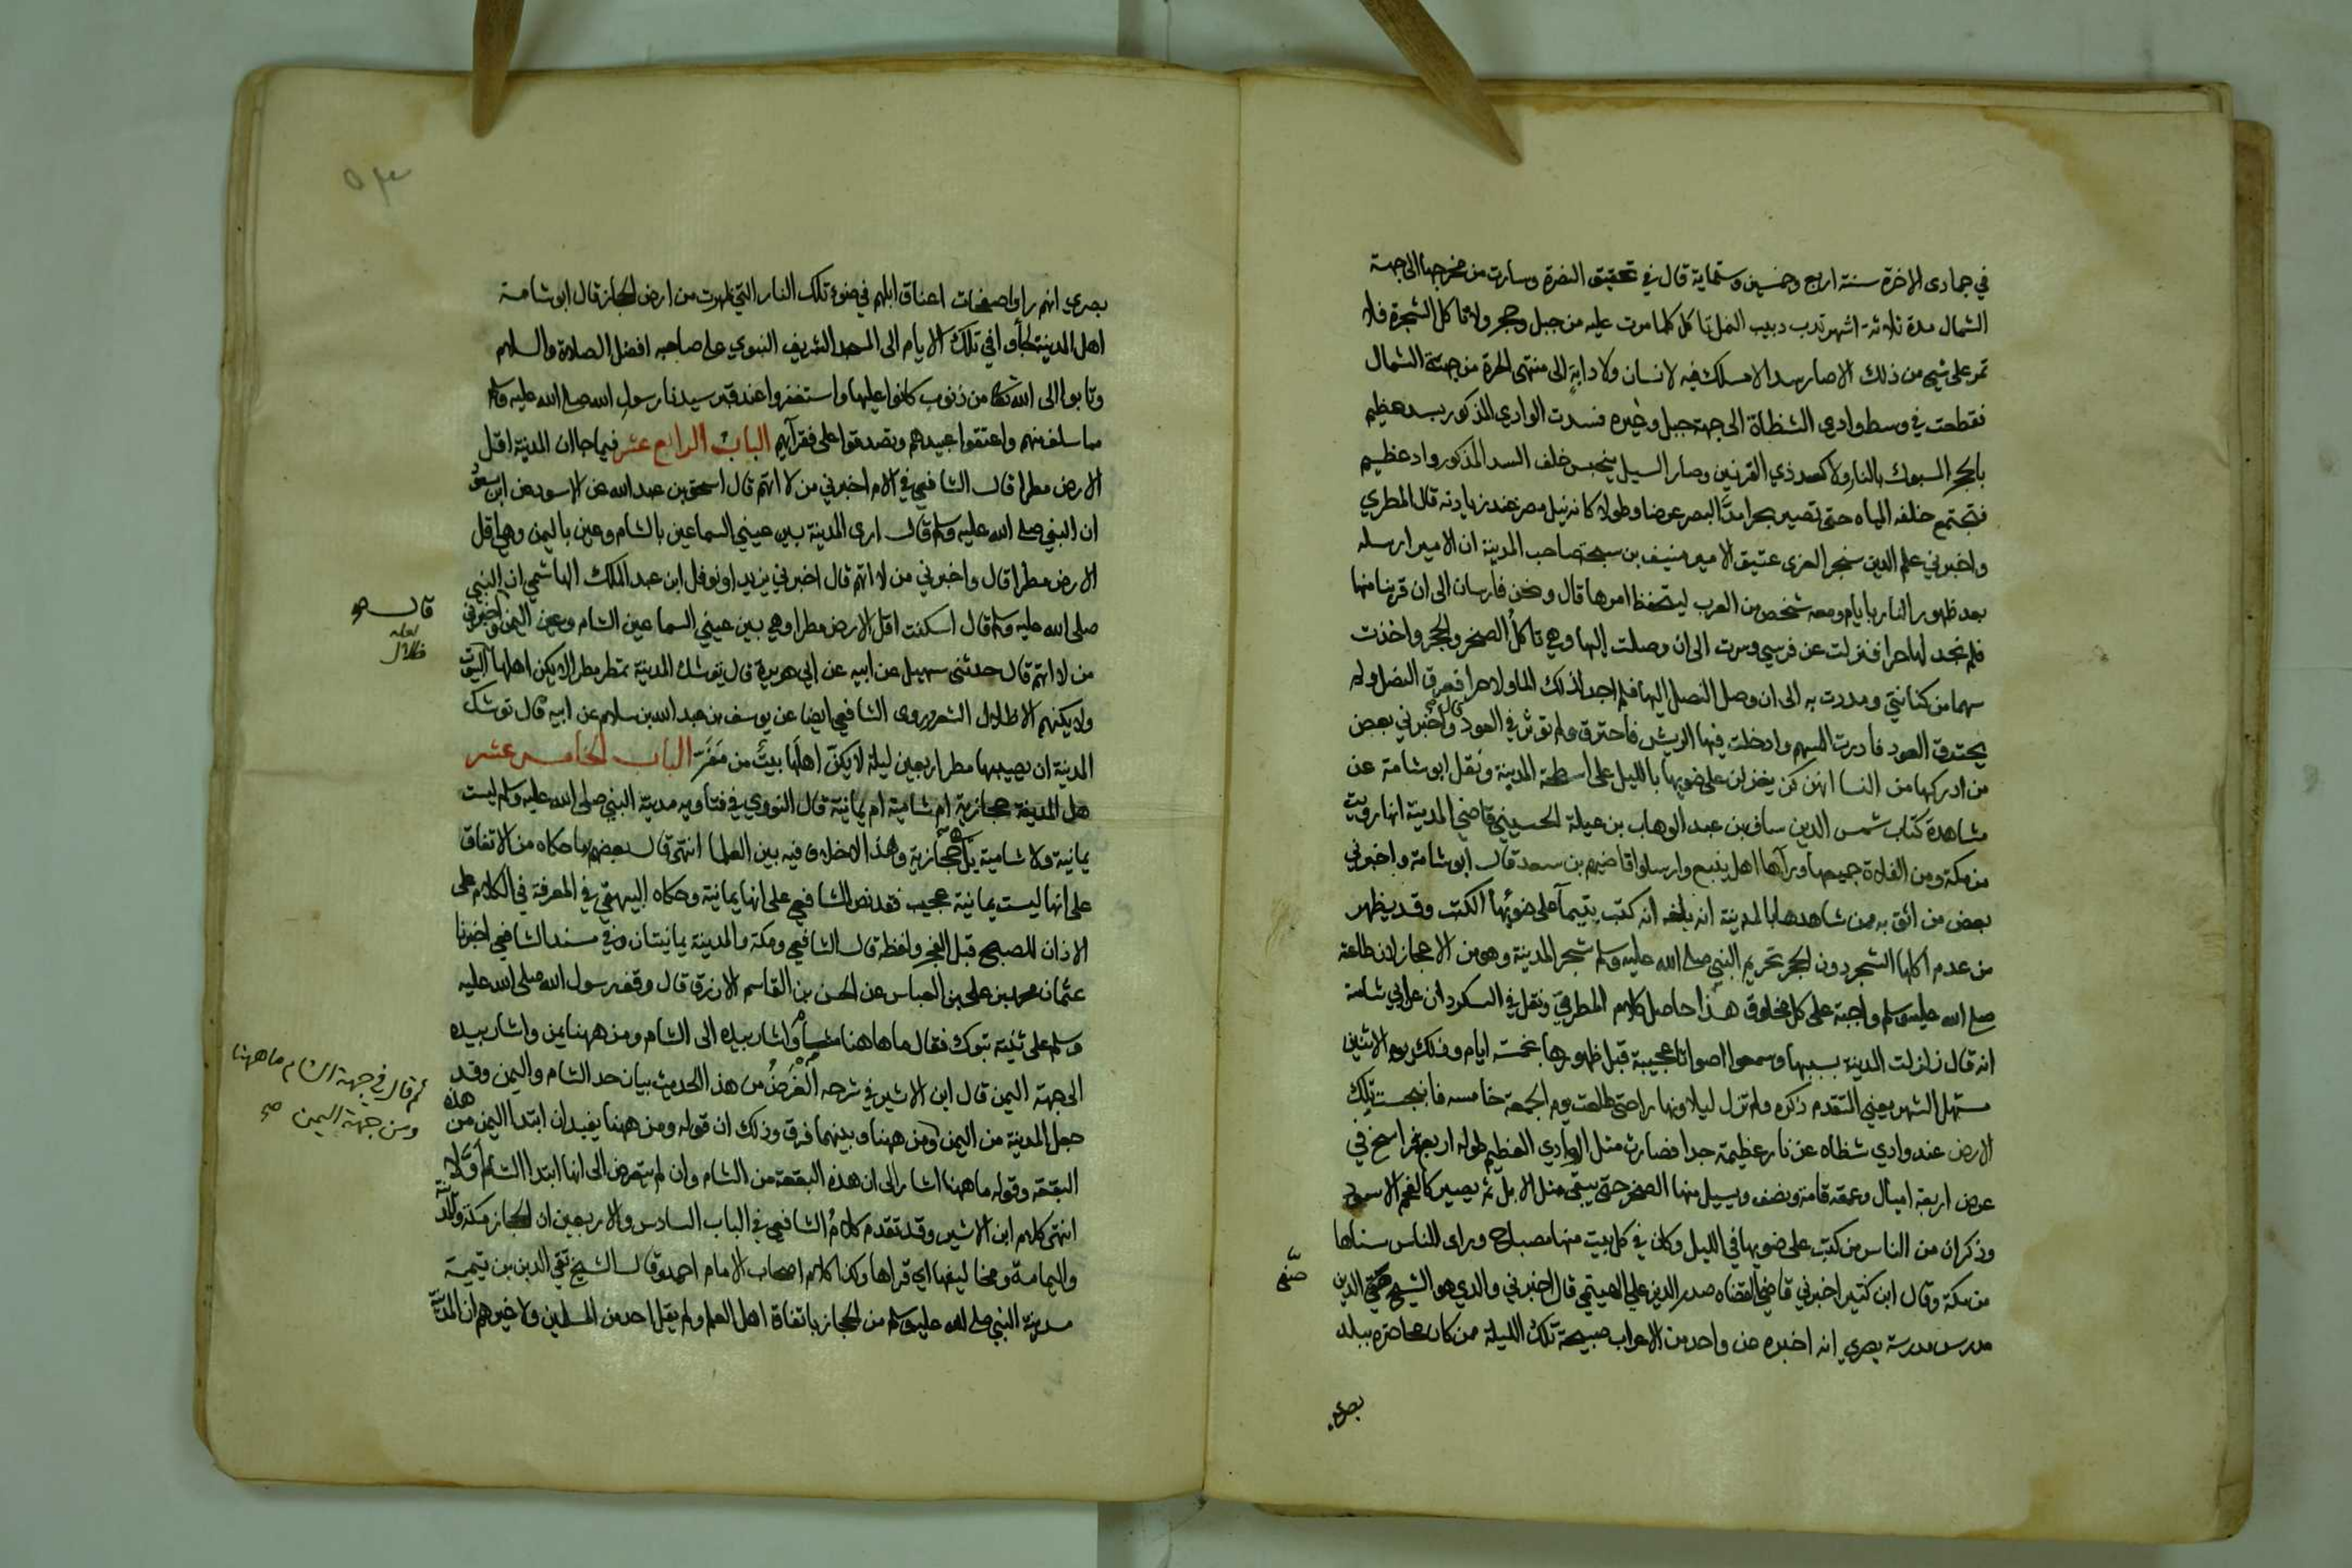 في جمادى الاخرة سنة اربع وخمسين وستماية قال في تحقيق النضرة وسارت من مخرجها الى جهة
الشمال مدة ثلاثة اشهر تدب دبيب النمل تاكل كلما مرت عليه من جبل وحجر ولا تاكل الشجرة فلا
تمر على شيء من ذلك الا صار سدا لا مسلك فيه لانسان ولا دابة الى منتهى الحرة من جهة الشمال
فقطعت في وسط وادي الشظاة الى جهة جبل وغيره فسدت الوادي المذكور بسد عظيم
بالحجر المسبوك بالنار ولا كسد ذي القرنين وصار السيل ينحبس خلف السد المذكور واد عظيم
فتجتمع خلفه المياه حتى تصير بحرا مد البصر عرضا وطولا كانه نيل مصر عند زيادته قال المطري
واخبرني علم الدين سنجر العزي عتيق الامير منيف بن سبحة صاحب المدينة ان الامير ارسله
بعد ظهور النار بايام ومعه شخص من العرب ليتحفظ امرها قال ونحن فارسان الى ان قربنا منها
فلم نجد لها حرا فنزلت عن فرسي وسرت الى ان وصلت اليها وهي تاكل الصخر والحجر واخذت
سهما من كنانتي ومددت به الى ان وصل النصل اليها فلم اجد لذلك الما ولا حرا فعرق النصل ولم
يحترق العود فادرت السهم وادخلت فيها الريش فاحترق ولم توثر في العود قال واخبرني بعض
من ادركها من النسا انهن كن يغزلن على ضويها بالليل على اسطحة المدينة ونقل ابو شامة عن
مشاهدة كتاب شمس الدين سنان بن عبد الوهاب بن عيلة الحسيني قاضي المدينة انها رويت
من مكة ومن الفلاة جميعها ورآها اهل ينبع وارسلوا قاضيهم بن سعد قال ابو شامة واخبرني
بعض من اثق به ممن شاهدها بالمدينة انه بلغه انه كتب بتيما على ضوئها الكتب وقد يظهر
من عدم اكلها الشجر دون الحجر تحريم النبي صلى الله عليه وسلم شجر المدينة وهو من الاعجاز لان طاعته
صلى الله عليه وسلم واجبة على كل مخلوق هذا حاصل كلام المطري ونقل في السكردان عن ابي شامة
انه قال زلزلت المدينة بسببها وسمعوا اصواتا عجيبة قبل ظهورها بخمسة ايام وذلك يوم الاثنين
مستهل الشهر يعني المتقدم ذكره ولم تزل ليلا ونهارا حتى طلعت يوم الجمعة خامسه فانبجست تلك
الارض عند وادي شظاه عن نار عظيمة جدا فصارت مثل الوادي العظيم طوله اربع فراسخ في
عرض اربعة اميال وعمقه قامة ونصف ويسيل منها الصخر حتى يبقى مثل الابل ثم يصير كالفحم الاسود
وذكر ان من الناس من كتب على ضويها في الليل وكان في كل بيت منها مصباح وراى الناس سناها
من مكة وقال ابن كثير اخبرني قاضي القضاه صدر الدين علي الهيثمي قال اخبرني والدي هو الشيخ صفي الدين
صفي
مدرس مدرسة بصري انه اخبره عن واحد من الاعراب صبيحة تلك الليلة من كان بحاضره ببلد
بصرى
٥٣
بصري انهم راوا صفحات اعناق ابلهم في ضوء تلك النار التي ظهرت من ارض الحجاز قال ابو شامة
اهل المدينة لجأوا في تلك الايام الى المسجد الشريف النبوي على صاحبه افضل الصلاة والسلام
وتابوا الى الله تعالى من ذنوب كانوا عليها واستغفروا عند قبر سيدنا رسول الله صلى الله عليه وسلم
مما سلف منهم واعتقوا عبيدهم وتصدقوا على فقرآيهم الباب الرابع عشر فيما جا ان المدينة اقل
الارض مطرا قال الشافعي في الام اخبرني من لا اتهم قال اسحق بن عبد الله عن الاسود عن ابن مسعود
ان النبي صلى الله عليه وسلم قال ارى المدينة بين عيني السما عين بالشام وعين باليمن وهي اقل
الارض مطرا قال واخبرني من لا اتهم قال اخبرني يزيد او نوفل ابن عبد الملك الهاشمي ان النبي
صلى الله عليه وسلم قال اسكنت اقل الارض مطرا وهي بين عيني السما عين الشام وعين اليمن واخبرني
قال صح
لعله
ظلال
من لا اتهم قال حدثني سهيل عن ابيه عن ابي هريرة قال يوشك المدينة تمطر مطرا لا يكن اهلها البيوت
ولا يكنهم الا ظلال الشعر وروى الشافعي ايضا عن يوسف بن عبد الله بن سلام عن ابيه قال توشك
المدينة ان يصيبها مطر اربعين ليلة لا يكن اهلها بيت من مدر الباب الخامس عشر
هل المدينة حجازية ام شامية ام يمانية قال النووي في فتاويه مدينة النبي صلى الله عليه وسلم ليست
يمانية ولا شامية بل هي حجازية وهذا لا خلاف فيه بين العلما انتهى قال بعضهم ما حكاه من الاتفاق
على انها ليست يمانية عجيب فقد نص الشافعي على انها يمانية وحكاه البيهقي في المعرفة في الكلام على
الاذان للصبح قبل الفجر ولفظه قال الشافعي ومكة والمدينة يمانيتان وفي مسند الشافعي اخبرنا
عثمان محمد بن علي بن العباس عن الحسن بن القاسم الازرق قال وقف رسول الله صلى الله عليه
وسلم على ثنية تبوك فقال ما هاهنا شام واشار بيده الى الشام ومن ههنا يمن واشار بيده
الى جهة اليمن قال ابن الاثير في شرحه الغرض من هذا الحديث بيان حد الشام واليمن وقد
ثم قال في جهة الشام ما ههنا
ومن جهة اليمن صح
جعل المدينة من اليمن ومن ههنا وبينهما فرق وذلك ان قوله ومن ههنا يفيد ان ابتدا اليمن من هذه
البقعة وقوله ما ههنا اشار الى ان هذه البقعة من الشام وان لم يتعرض الى انها ابتدا الشام اولا
انتهى كلام ابن الاثير وقد تقدم كلام الشافعي في الباب السادس والاربعين ان الحجاز مكة والمدينة
واليمامة ومخاليفها اي قراها وكذا كلام اصحاب الامام احمد وقال الشيخ تقي الدين بن تيمية
مدينة النبي صلى الله عليه وسلم من الحجاز باتفاق اهل العلم ولم يقل احد من المسلمين ولا غيرهم ان المدينة